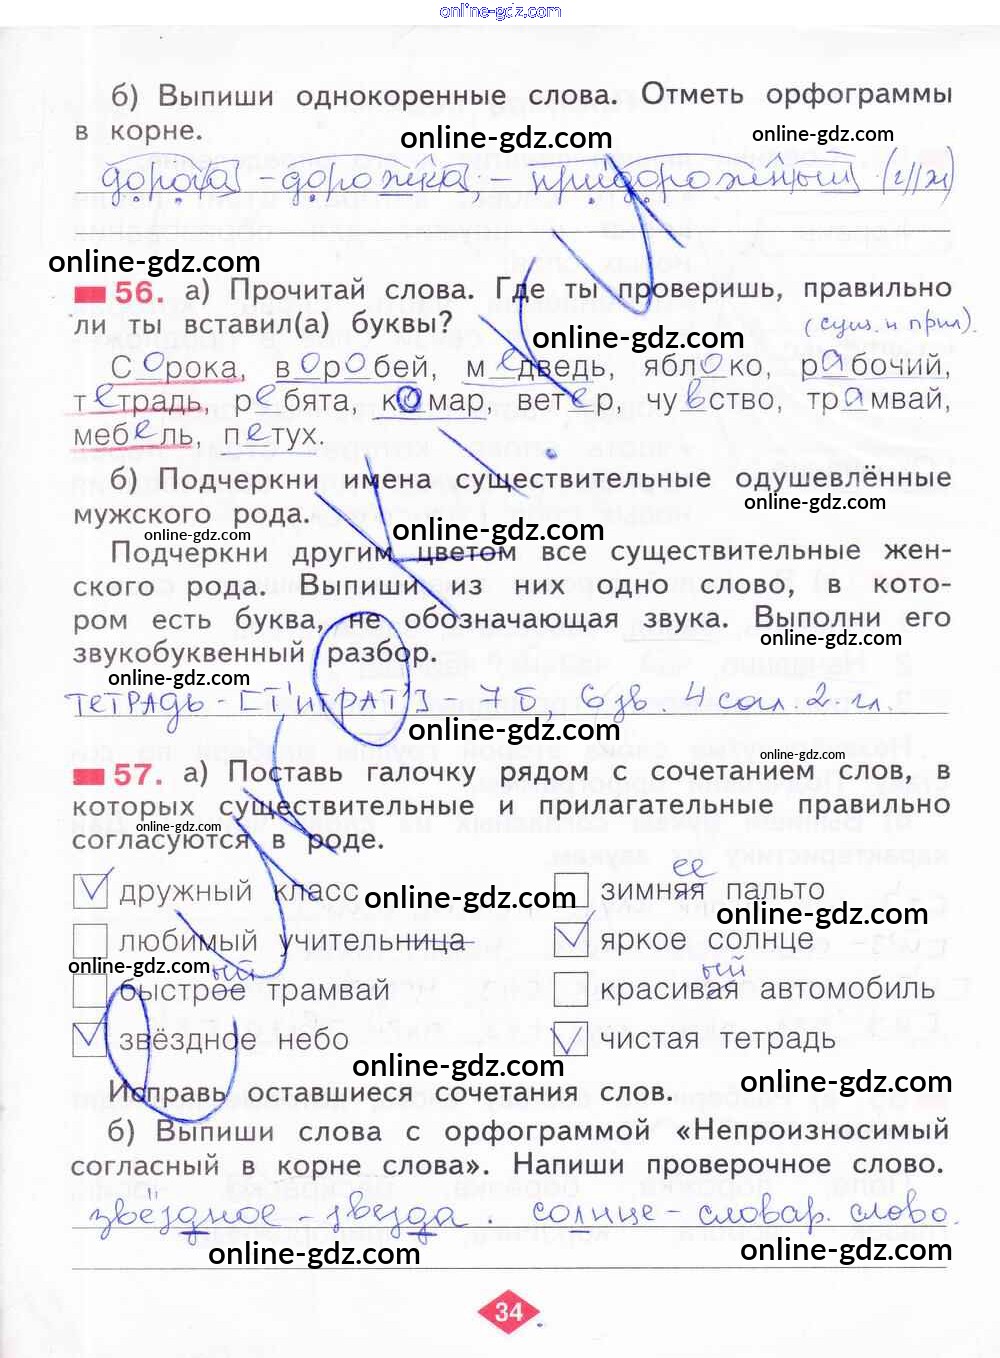 online-gdz.com
б) Выпиши однокоренные слова. Отметь орфограммы
в корне.
online-gdz.com
online-gdz.com
дорога - дорожка - придорожный (г//ж)
online-gdz.com
56. а) Прочитай слова. Где ты проверишь, правильно
ли ты вставил(а) буквы?
(сущ. и прил.)
online-gdz.com
Сорока, воробей, медведь, яблоко, рабочий,
тетрадь, ребята, комар, ветер, чувство, трамвай,
мебель, петух.
online-gdz.com
б) Подчеркни имена существительные одушевлённые
мужского рода.
online-gdz.com
online-gdz.com
online-gdz.com
Подчеркни другим цветом все существительные жен-
ского рода. Выпиши из них одно слово, в кото-
ром есть буква, не обозначающая звука. Выполни его
звукобуквенный разбор.
online-gdz.com
online-gdz.com
тетрадь - [т'итрат'] - 7 б, 6 зв. 4 согл. 2 гл.
online-gdz.com
online-gdz.com
57. а) Поставь галочку рядом с сочетанием слов, в
которых существительные и прилагательные правильно
согласуются в роде.
online-gdz.com
ее
дружный класс зимняя пальто
online-gdz.com
online-gdz.com
любимый учительница яркое солнце
online-gdz.com
ый ый
быстрое трамвай красивая автомобиль
звёздное небо чистая тетрадь
online-gdz.com
online-gdz.com
Исправь оставшиеся сочетания слов.
б) Выпиши слова с орфограммой «Непроизносимый
согласный в корне слова». Напиши проверочное слово.
звёздное - звезда. солнце - словар. слово.
online-gdz.com
online-gdz.com
34